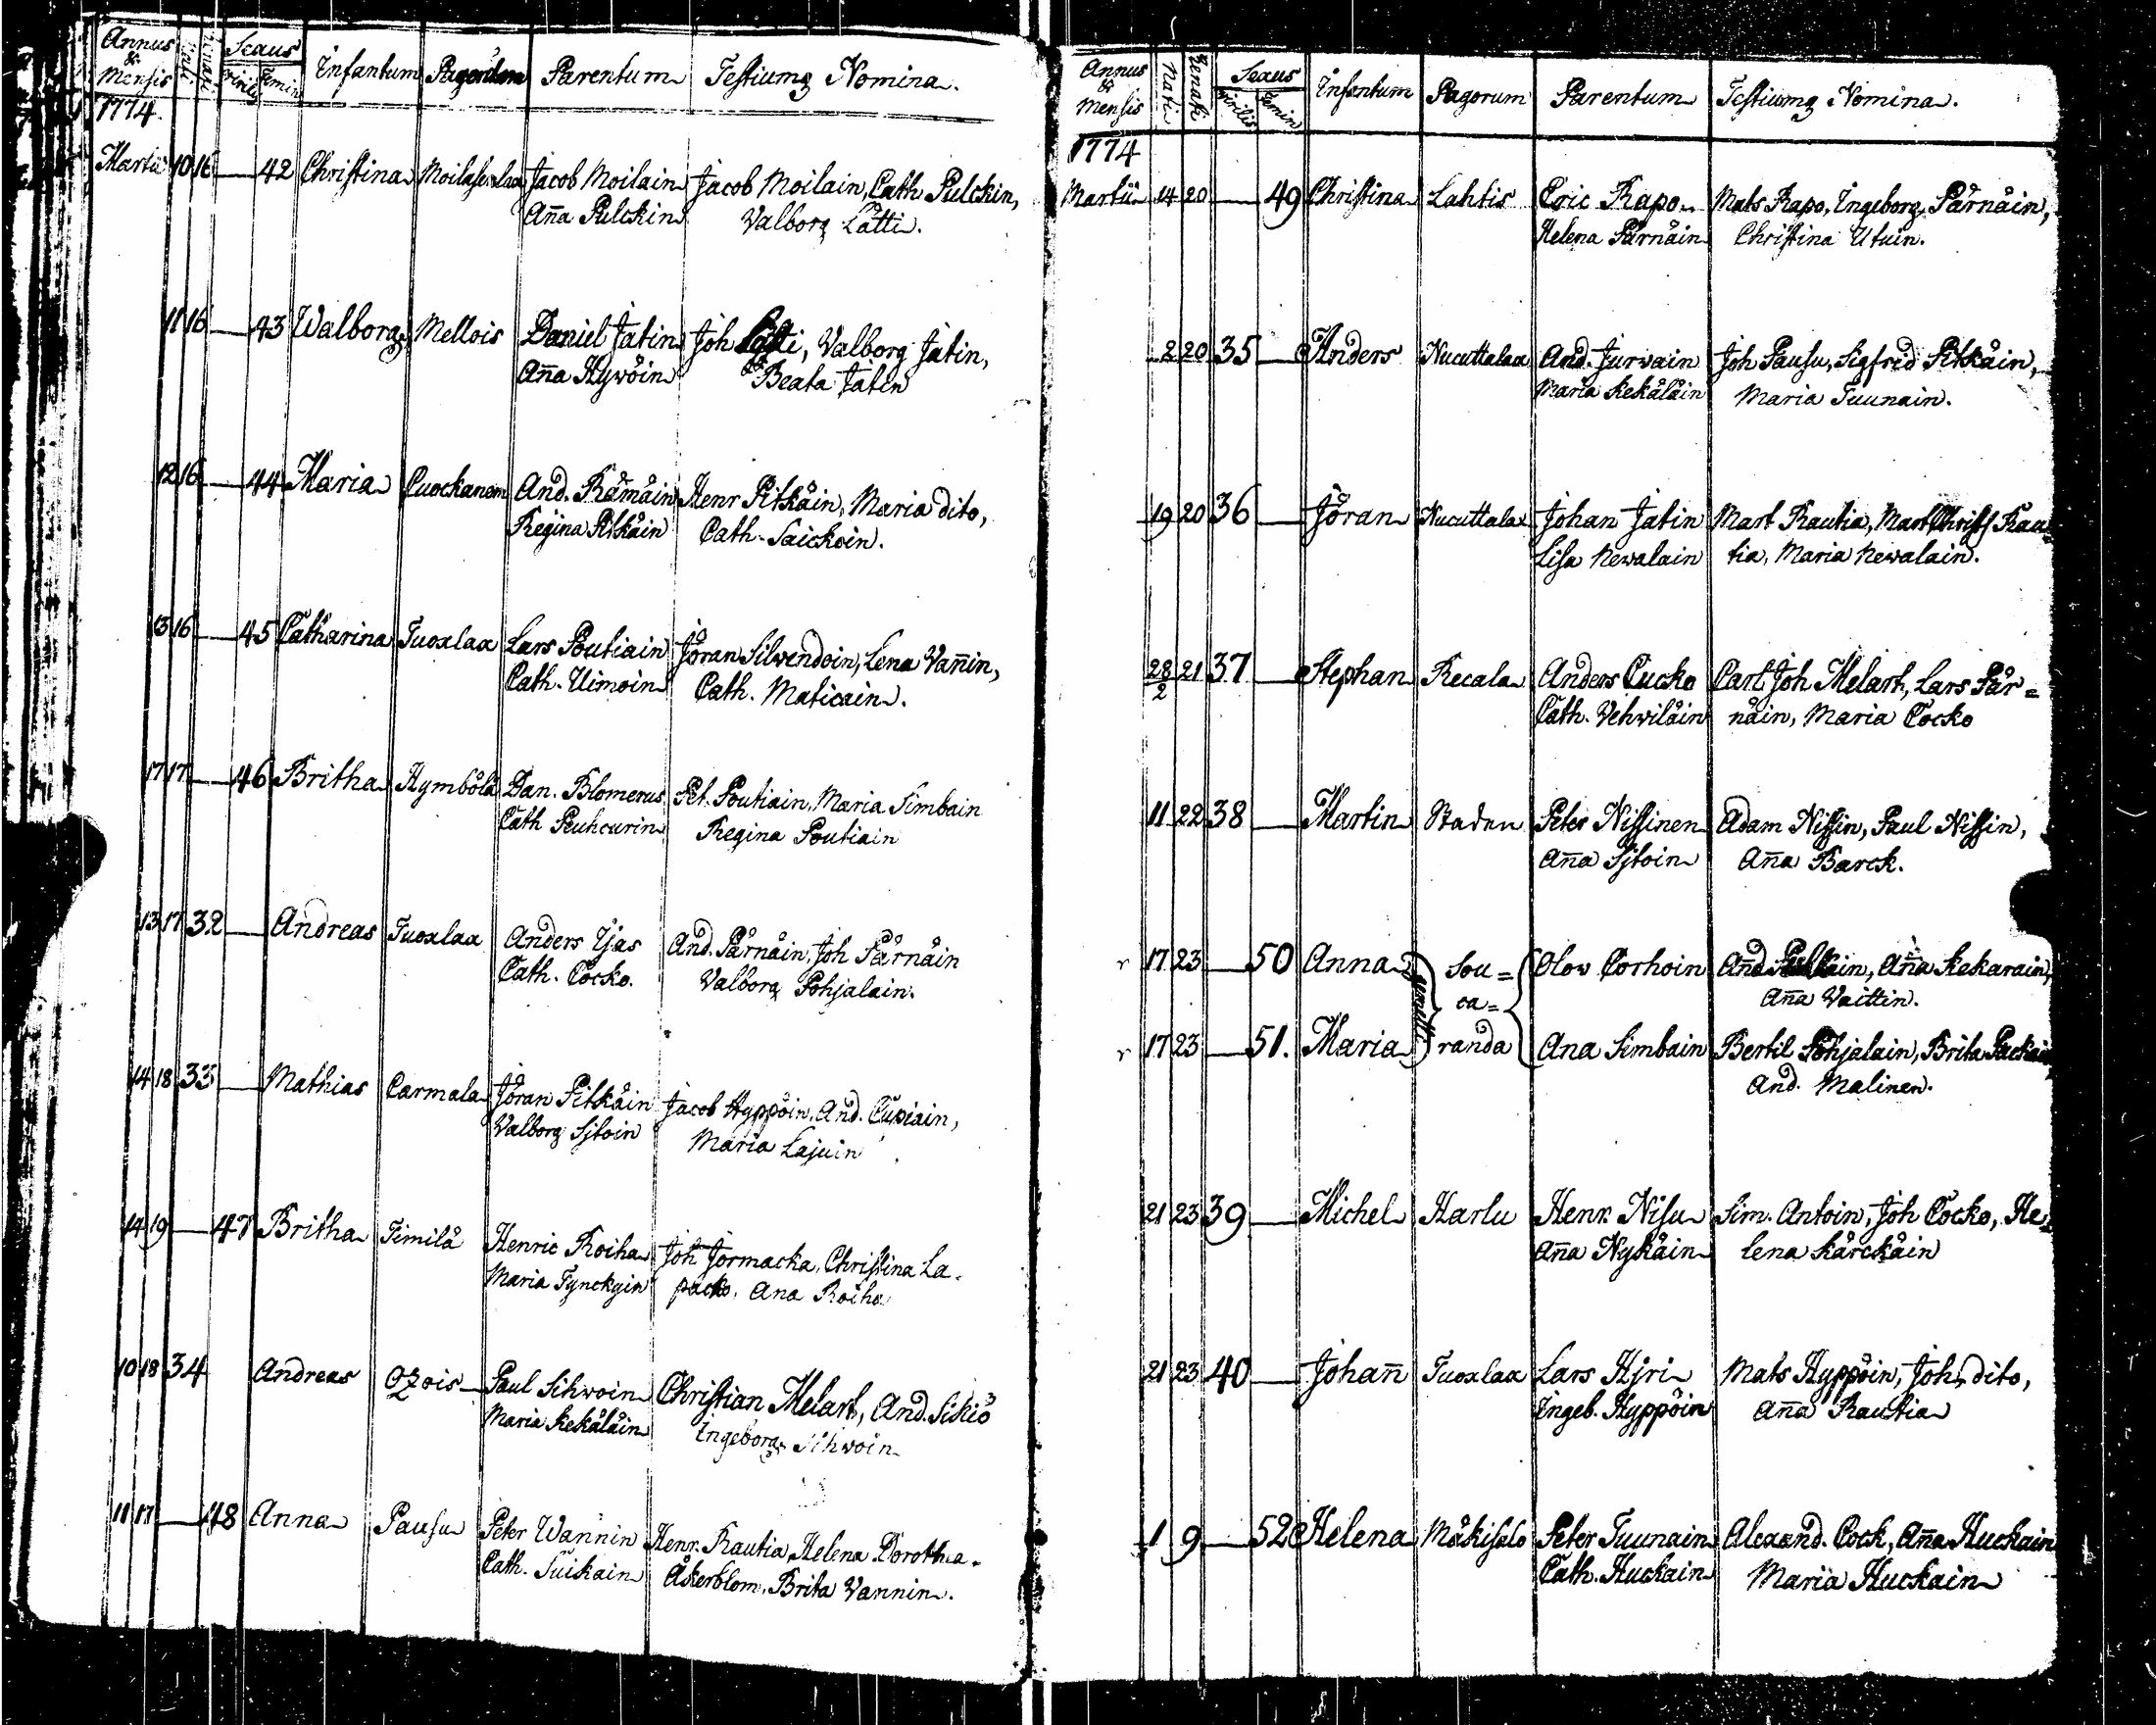 Annus & Mensis Nati Renati Sexus Virilis Femin Infantum Pagorum Parentum Testiumq Nomina.
1774.
Martii 10 16 — 42 Christina Jacob Moilain Jacob Moilain, Cath. Pulckin,
Aña Pulckin Valborg Lätti.
11 16 — 43 Walborg Mellois Daniel Jatin Joh Lätti, Valborg Jatin,
Aña Hywöin Beata Jatin
12 16 — 44 Maria Cuockanem And. Rämäin Henr Pitkäin, Maria dito,
Regina Pitkäin Cath. Saickoin.
13 16 — 45 Catharina Tuoxlax Lars Poutiain Jöran Silvendoin, Lena Vañin,
Cath. Uimoin Cath. Maticain.
17 17 — 46 Britha Hymbölä Dan. Blomerus Pet. Poutiain, Maria Simbain
Cath Peuhcurin Regina Poutiain
13 17 32 — Andreas Tuoxlax Anders Ijas And. Pärnäin, Joh Pärnäin
Cath. Cocko. Valborg Pohjalain.
14 18 33 — Mathias Carmala Jöran Pitkäin Jacob Hyppöin, And. Cupiain,
Valborg Sjtoin Maria Lajuin
14 19 — 47 Britha Timilä Henric Roiha Joh Jormacka, Christina La-
Maria Tynckyin packo. Ana Roiha
10 18 34 Andreas Ozois Paul Sihwoin Christian Melart, And. Sikiö
Maria Kekäläin Ingeborg Sihwoin
11 17 — 48 Anna Pausu Peter Wannin Henr. Rautia, Helena Dorothea
Cath. Suikain Åkerblom, Brita Vannin.
Annus & Mensis Nati Renati Sexus Virilis Femin Infantum Pagorum Parentum Testiumq Nomina.
1774
Martii 14 20 — 49 Christina Lahtis Eric Rapo Mats Rapo, Ingeborg Pärnäin,
Helena Pärnäin Christina Utuin.
2 20 35 — Anders Nucuttalax And. Jurvain Joh Pausu, Sigfrid Pitkäin,
Maria Kekäläin Maria Tuunain.
19 20 36 — Jöran Nucuttalax Johan Jatin Mart Rautia, Mart Christ Rau-
Lisa Newalain tia, Maria Newalain.
28/2 21 37 — Stephan Recala Anders Cucko Carl Joh Melart, Lars Pär=
Cath. Vehviläin näin, Maria Cocko
11 22 38 — Martin Staden Peter Nissinen Adam Nissin, Paul Nissin,
Aña Sjtoin Aña Barck.
17 23 — 50 Anna Sou= Olov Corhoin And. Aña Kekarain,
ca= Aña Vaittin.
17 23 — 51. Maria gemelli randa Ana Simbain Bertil Pohjalain, Brita Packai
And. Malinen.
21 23 39 — Michel Harlu Henr. Nisu Sim. Antoin, Joh Cocko, He-
Aña Nykäin lena Kärckäin
21 23 40 — Johañ Tuoxlax Lars Hjri Mats Hyppöin, Joh dito,
Ingeb. Hyppöin Aña Rautia
1 9 — 52 Helena Mäkisalo Peter Tuunain Alexand. Cock, Aña Huckain
Cath. Huckain Maria Huckain